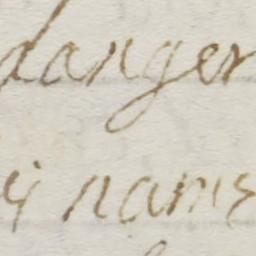 danger
nams